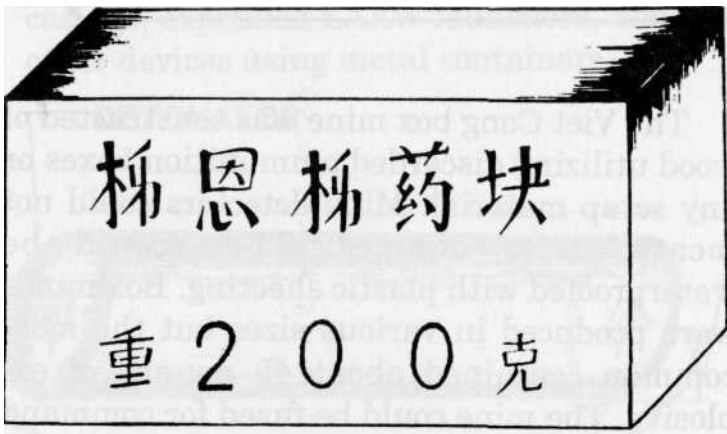 梯恩梯药块
重200克